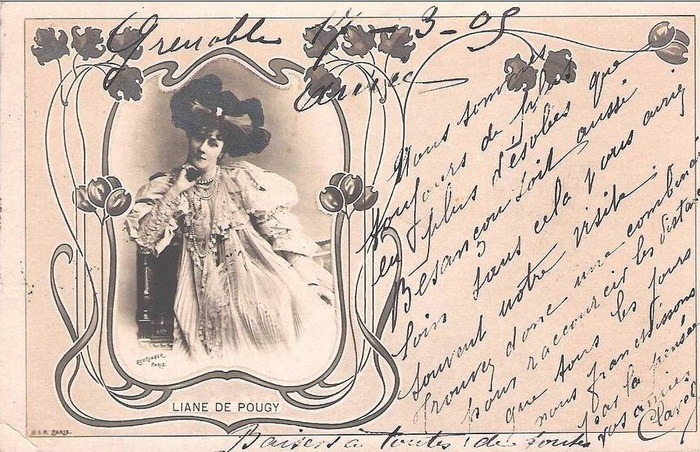 Grenoble 17-3-05
Amies
Nous sommes
toujours de plus
en plus désolées que
Besançon soit aussi
loin sans cela vous auriez
souvent notre visite.
Trouvez donc une combinai
pour raccourcir les distan
que tous les jours
nous franchissons
par la pensée
vos amies
Clavel
Baisers à toutes de toutes
REUTLINGER
PARIS
LIANE DE POUGY
PARIS.